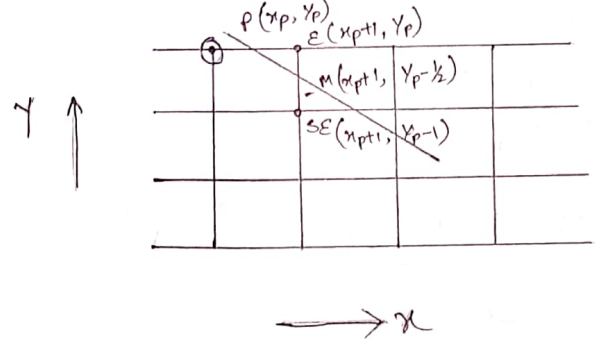 P(xp, Yp)
E(xp+1, Yp)
M(xp+1, Yp-1/2)
SE(xp+1, Yp-1)
Y
x